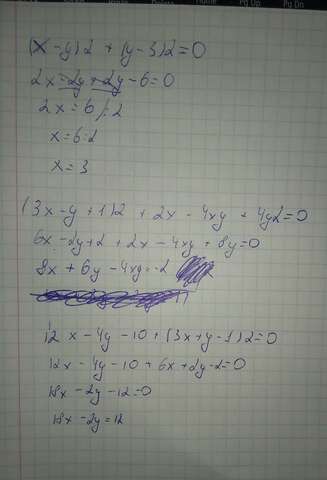 (x - y)2 + (y - 3)2 = 0
2x - 2y + 2y - 6 = 0
2x = 6 /:2
x = 6:2
x = 3
(3x - y + 1)2 + 2x - 4xy + 4y2 = 0
6x - 2y + 2 + 2x - 4xy + 8y = 0
8x + 6y - 4xy = -2
12x - 4y - 10 + (3x + y - 1)2 = 0
12x - 4y - 10 + 6x + 2y - 2 = 0
18x - 2y - 12 = 0
18x - 2y = 12